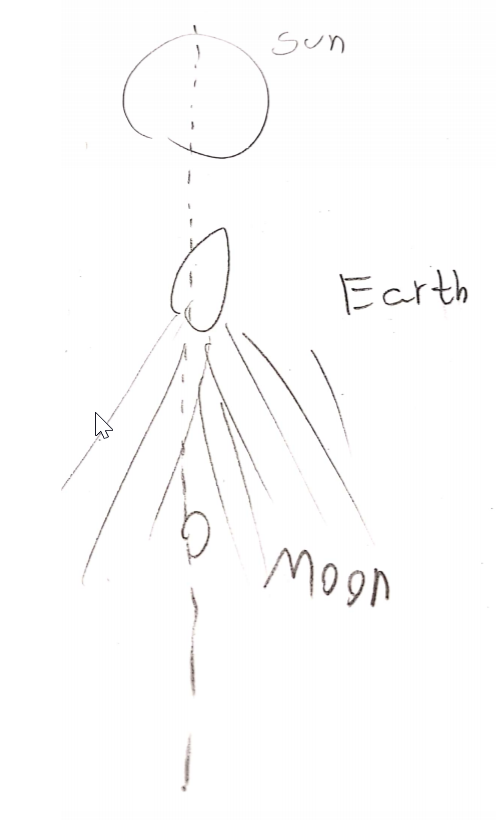 Sun
Earth
Moon